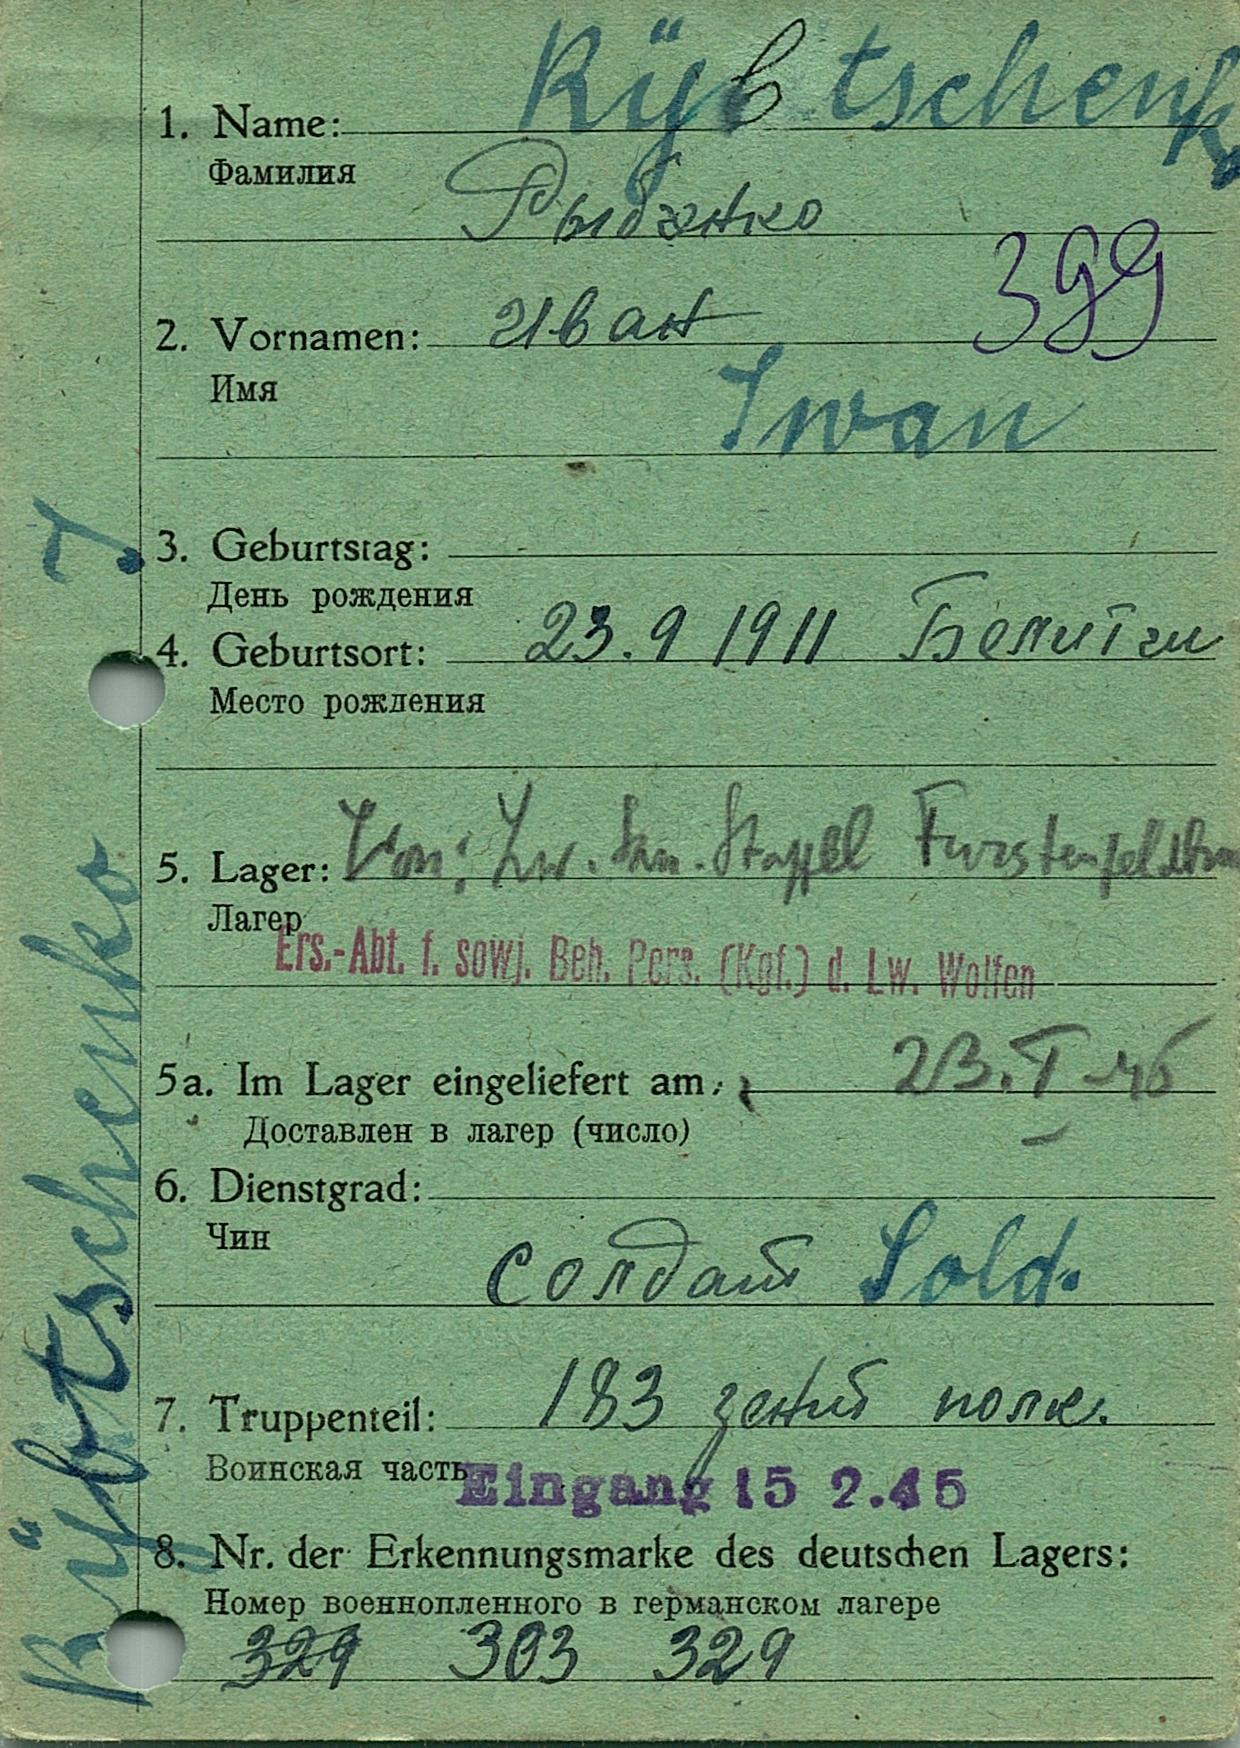 Rÿbtschenko
1. Name:
Фамилия
Рыбэнко
399
2. Vornamen: Иван
Имя
Iwan
3. Geburtstag:
День рождения
4. Geburtsort: 23.9 1911
Место рождения
5. Lager: Von: Lw. San. Staffel Furstenfeldbru
Лагер
Ers.-Abt. f. sowj. Beh. Pers. (Kgf.) d. Lw. Wolfen
5a. Im Lager eingeliefert am: 23. I 45
Доставлен в лагер (число)
6. Dienstgrad:
Чин
солдат Sold.
7. Truppenteil: 183 зенит полк.
Воинская часть
Eingang 15 2.45
8. Nr. der Erkennungsmarke des deutschen Lagers:
Номер военнопленного в германском лагере
329 303 329
Rÿbtschenko J.